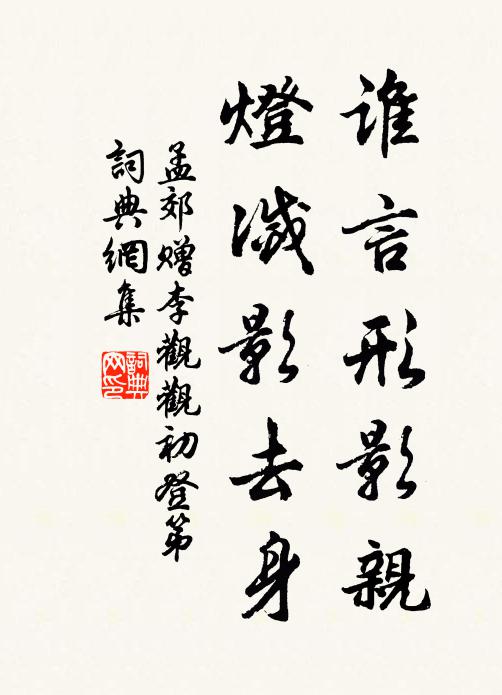 谁言形影親
燈滅影去身
孟郊贈李觀觀初登第
詞典網集
詞典
网印